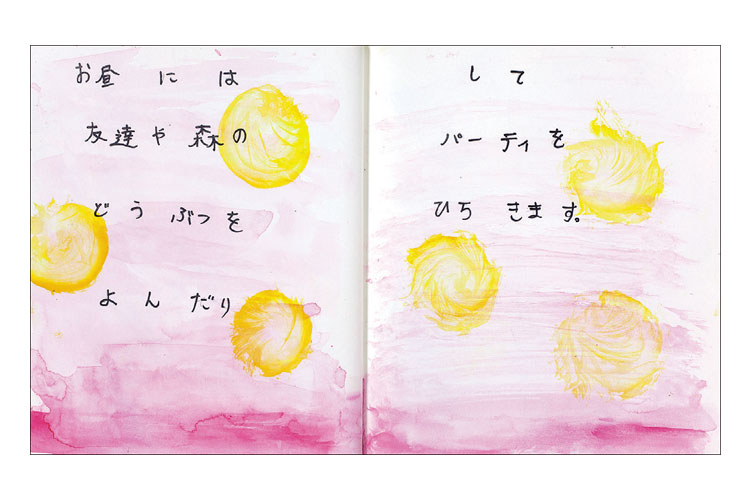 お昼には
友達や森の
どうぶつを
よんだり
して
パーティを
ひらきます。